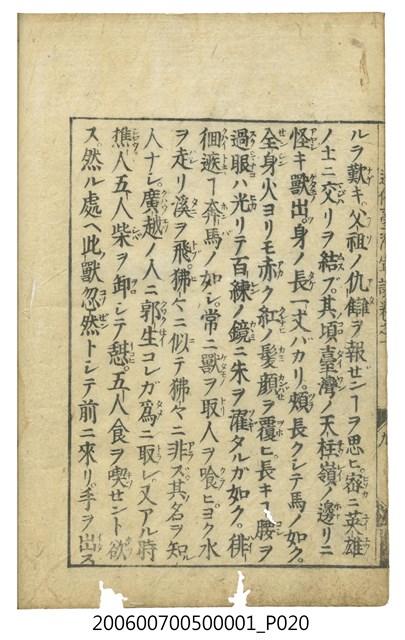 ルヲ歎キ父祖ノ仇讎ヲ報ゼンヿヲ思ヒ密ニ英雄
ノ士ニ交リヲ結ブ其頃臺灣ノ天柱嶺ノ邊リニ
怪キ獸出。身ノ長一丈バカリ。頬長クシテ馬ノ如ク。
全身火ヨリモ赤ク紅ノ髪顔ヲ覆ヒ長キヿ腰ヲ
過眼ハ光リテ百練ノ鏡ニ朱ヲ濯タルガ如ク。徘
徊遊ヿ奔馬ノ如シ。常ニ獸ヲ取人ヲ喰ヒヨク水
ヲ走リ溪ヲ飛。狒々ニ似テ狒々ニ非ス其名ヲ知
人ナシ。廣越ノ人ニ郭生コレガ爲ニ取レ又アル時
樵人五人柴ヲ卸シテ憇。五人食ヲ喫セント欲
ス然ル處ヘ此獸忽然トシテ前ニ來リ手ヲ出ス
200600700500001_P020